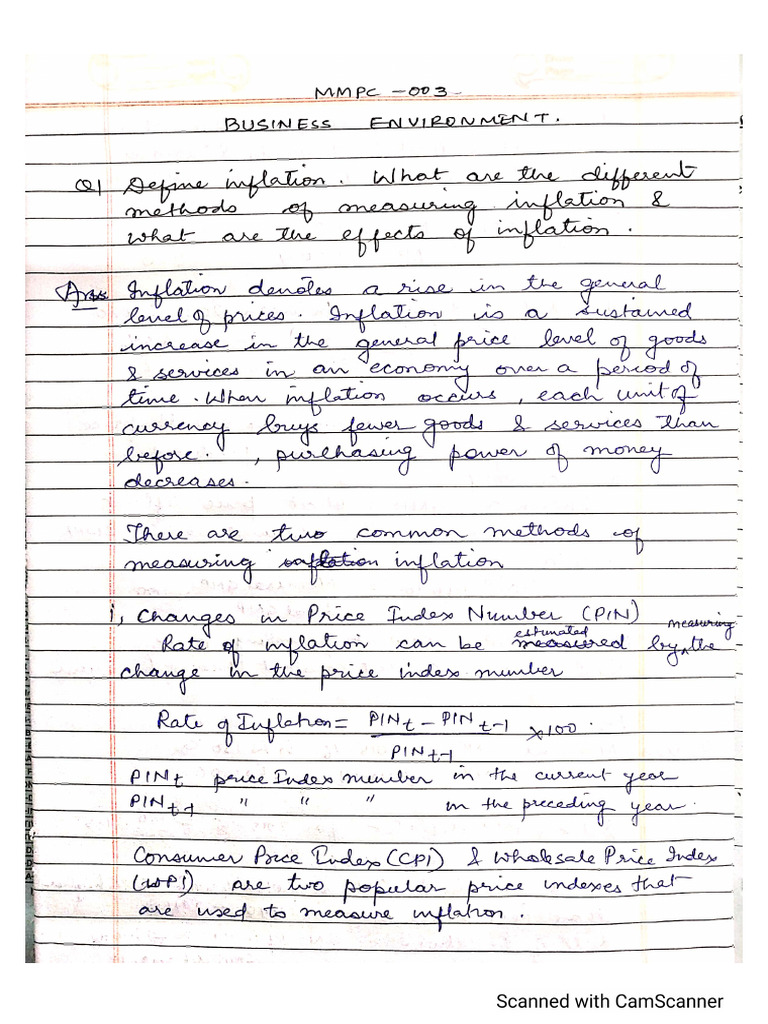 MMPC -003
BUSINESS ENVIRONMENT.
Q1 Define inflation. What are the different
methods of measuring inflation &
what are the effects of inflation.
Ans Inflation denotes a rise in the general
level of prices. Inflation is a sustained
increase in the general price level of goods
& services in an economy over a period of
time. When inflation occurs, each unit of
currency buys fewer goods & services than
before. , purchasing power of money
decreases.
There are two common methods of
measuring inflation inflation
i, Changes in Price Index Number (PIN)
Rate of inflation can be measured estimated by measuring the
change in the price index number
Rate of Inflation = PINt - PINt-1 / PINt-1 x100.
PINt price Index number in the current year
PINt-1 " " " in the preceding year.
Consumer Price Index (CPI) & Wholesale Price Index
(WPI) are two popular price indexes that
are used to measure inflation.
Scanned with CamScanner